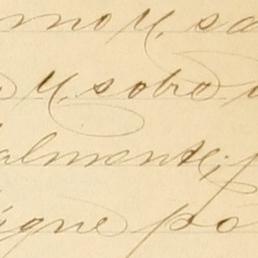 mo y, sa
y, sobre
almente;
igne po